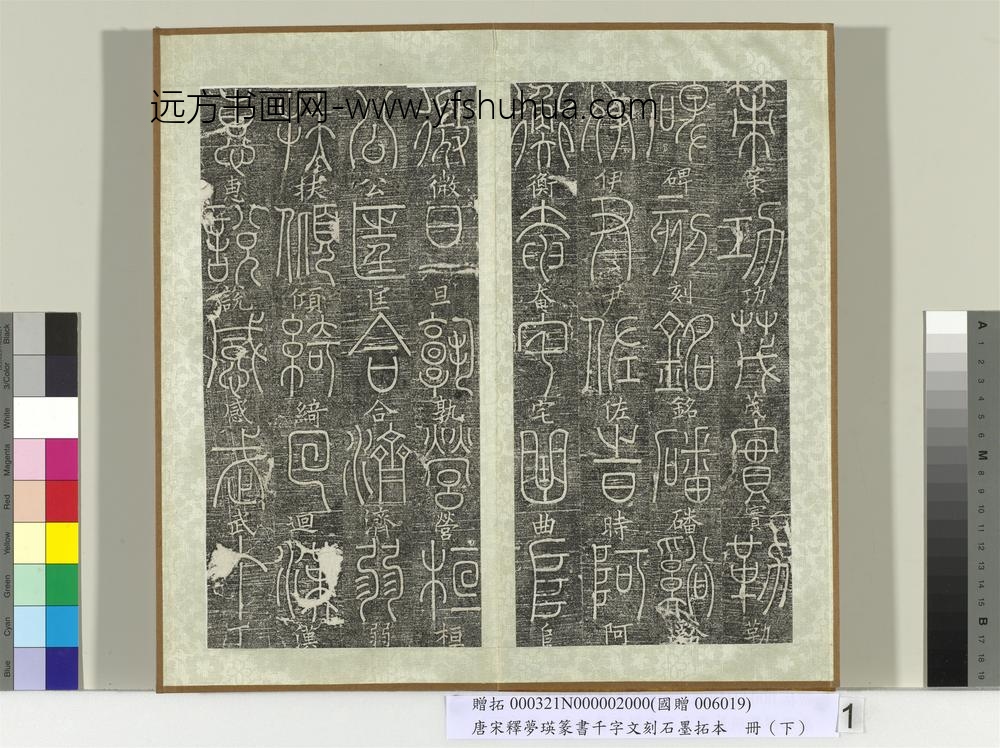 远方书画网-www.yfshuhua.com
策功茂實勒
碑刻銘磻谿
伊尹佐時阿
衡奄宅曲阜
微旦孰營桓
公匡合濟弱
扶傾綺回漢
惠說感武丁
贈拓 000321N000002000(國贈 006019)
唐宋釋夢瑛篆書千字文刻石墨拓本 冊(下)
1
Black
3/Color
White
Magenta
Red
Yellow
Green
Cyan
Blue
A
1
2
3
4
5
6
M
8
9
10
11
12
13
14
15
B
17
18
19